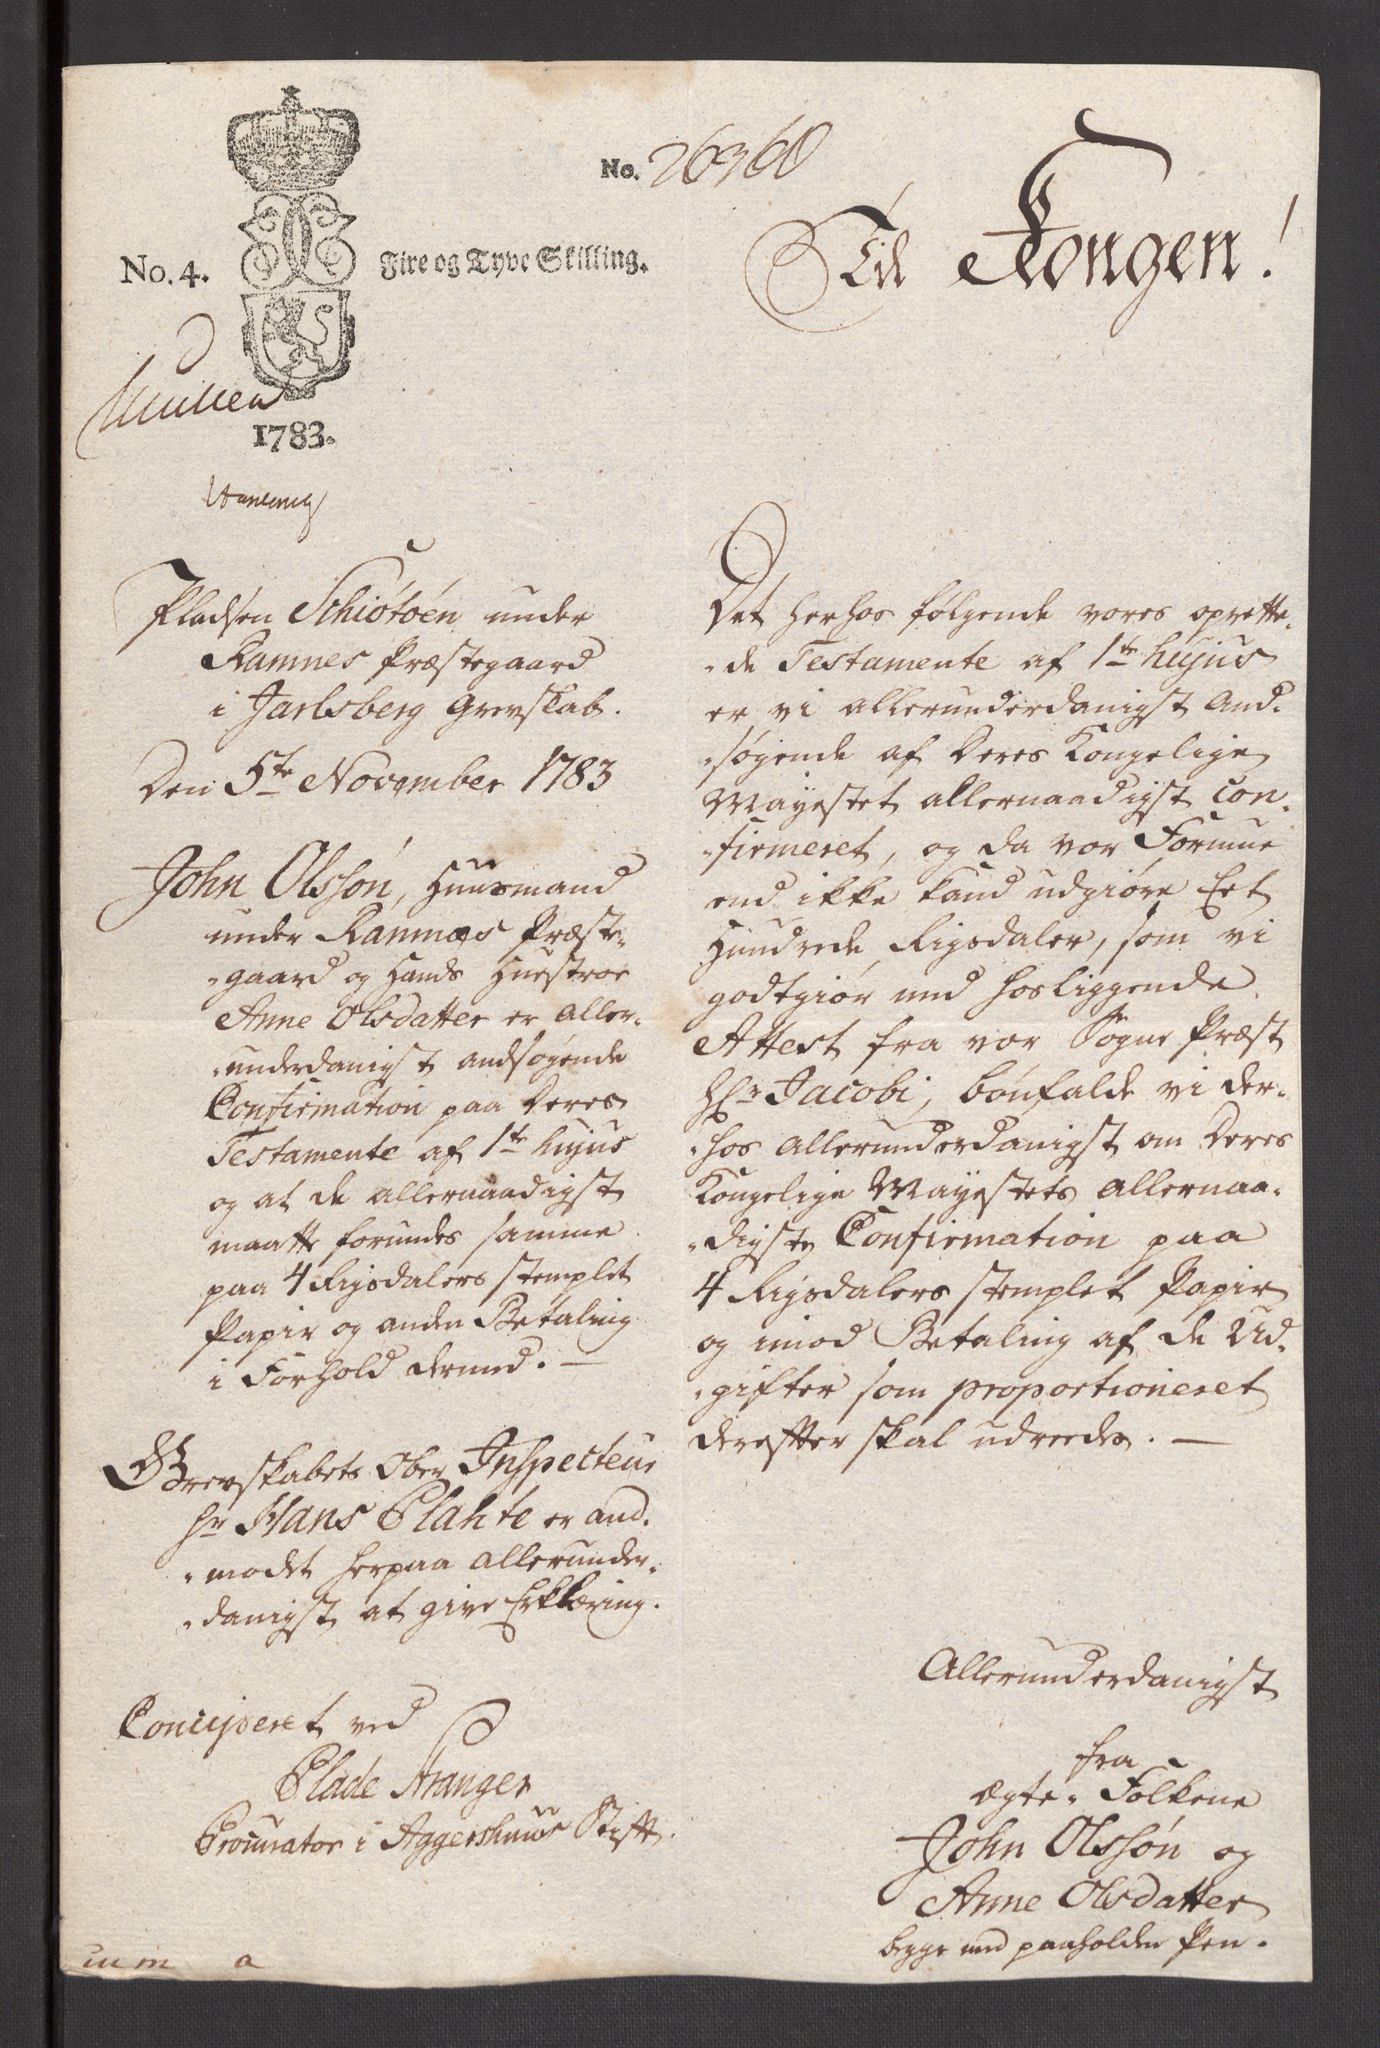 No. 26360
No. 4.
Fire og Tyve Skilling.
1783.
Til Kongen!
Pladsen Schiötöen under
Ramnes Præstegaard
i Jarlsberg Grevskab.
Den 5te November 1783
John Olssön, Huusmand
under Ramnæs Præste-
-gaard og Hands Huestroe
Anne Olsdatter er aller-
-underdanigst andsøgende
Confirmation paa Deres
Testamente af 1te hujus
og at de allernaadigst
maatte forundes samme
paa 4 Rigsdalers stemplet
Papir og anden Betaling
i Forhold dermed. —
Grevskabets Ober Inspecteur
Hr Hans Plahte er and-
-modet herpaa allerunder-
-danigst at give Erklæring.
Concijperet ved
Plade Stranger
Procurator i Aggershuus Stift.
Det herhos følgende vores oprette-
-de Testamente af 1te hujus
er vi allerunderdanigst And-
-søgende af Deres Kongelige
Mayestet allernaadigst con-
-firmeret, og da vor Formue
end ikke kand udgiøre Eet
Hundrede Rigsdaler, som vi
godtgiør med hosliggende
Attest fra vor Sogne Præst
Hr Jacobi, bönfalde vi der-
-hos allerunderdanigst om Deres
Kongelige Mayestets allernaa-
-digste Confirmation paa
4 Rigsdalers stemplet Papir
og imod Betaling af de Ud-
-gifter som proportioneret
derefter skal udredes. —
Allerunderdanigst
fra
ægte-Folkene
John Olssön og
Anne Olsdatter
begge med paaholden Pen.